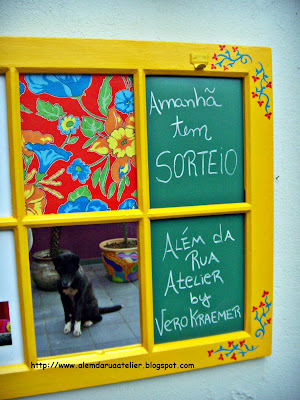 Amanhã
tem
SORTEIO
ALÉM da
RUA
ATELIER
by
VERO KRAEMER
http://www.alemdaruaatelier.blogspot.com